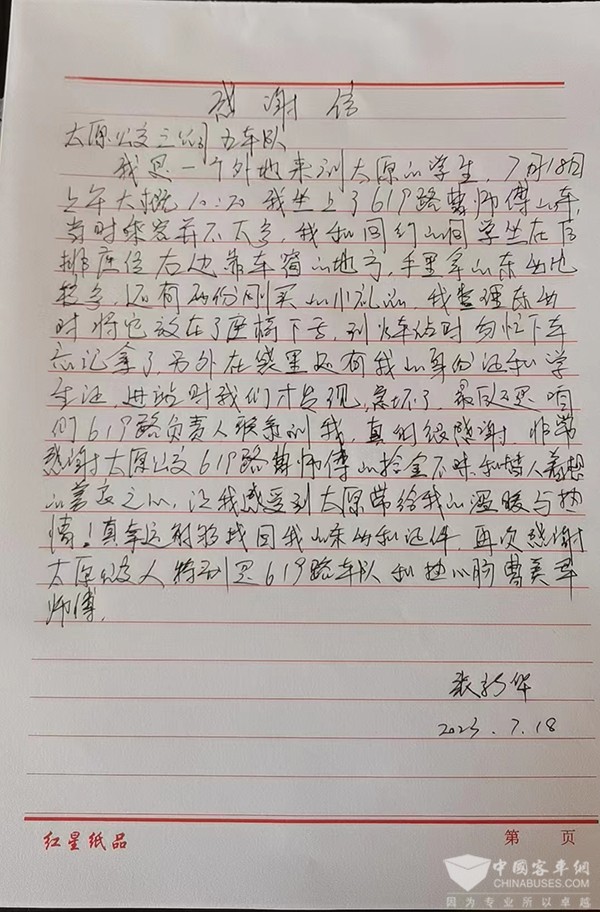 感谢信
太原公交三公司九车队
我是一个外地来到太原的学生，7月18日
上午大概10:20我坐上了619路曹师傅的车，
当时乘客并不太多，我和同行的同学坐在后
排座位右边靠车窗的地方，手里拿的东西比
较多，还有两份刚买的小礼品，我整理东西
时将它放在了座椅下面，到火车站时匆忙下车
忘记拿了，另外在袋里还有我的身份证和学
生证，进站时我们才发现，急坏了，最后还是咱
们619路负责人联系到我，真的很感谢，非常
感谢太原公交619路曹师傅的拾金不昧和替人着想
的善良之心，让我感受到太原带给我的温暖与热
情！真幸运能够找回我的东西和证件，再次感谢
太原公交人特别是619路车队和热心肠曹美
师傅，
张新华
2023.7.18
红星纸品
第 页
中國客车網
CHINABUSES.COM
因为专业所以卓越